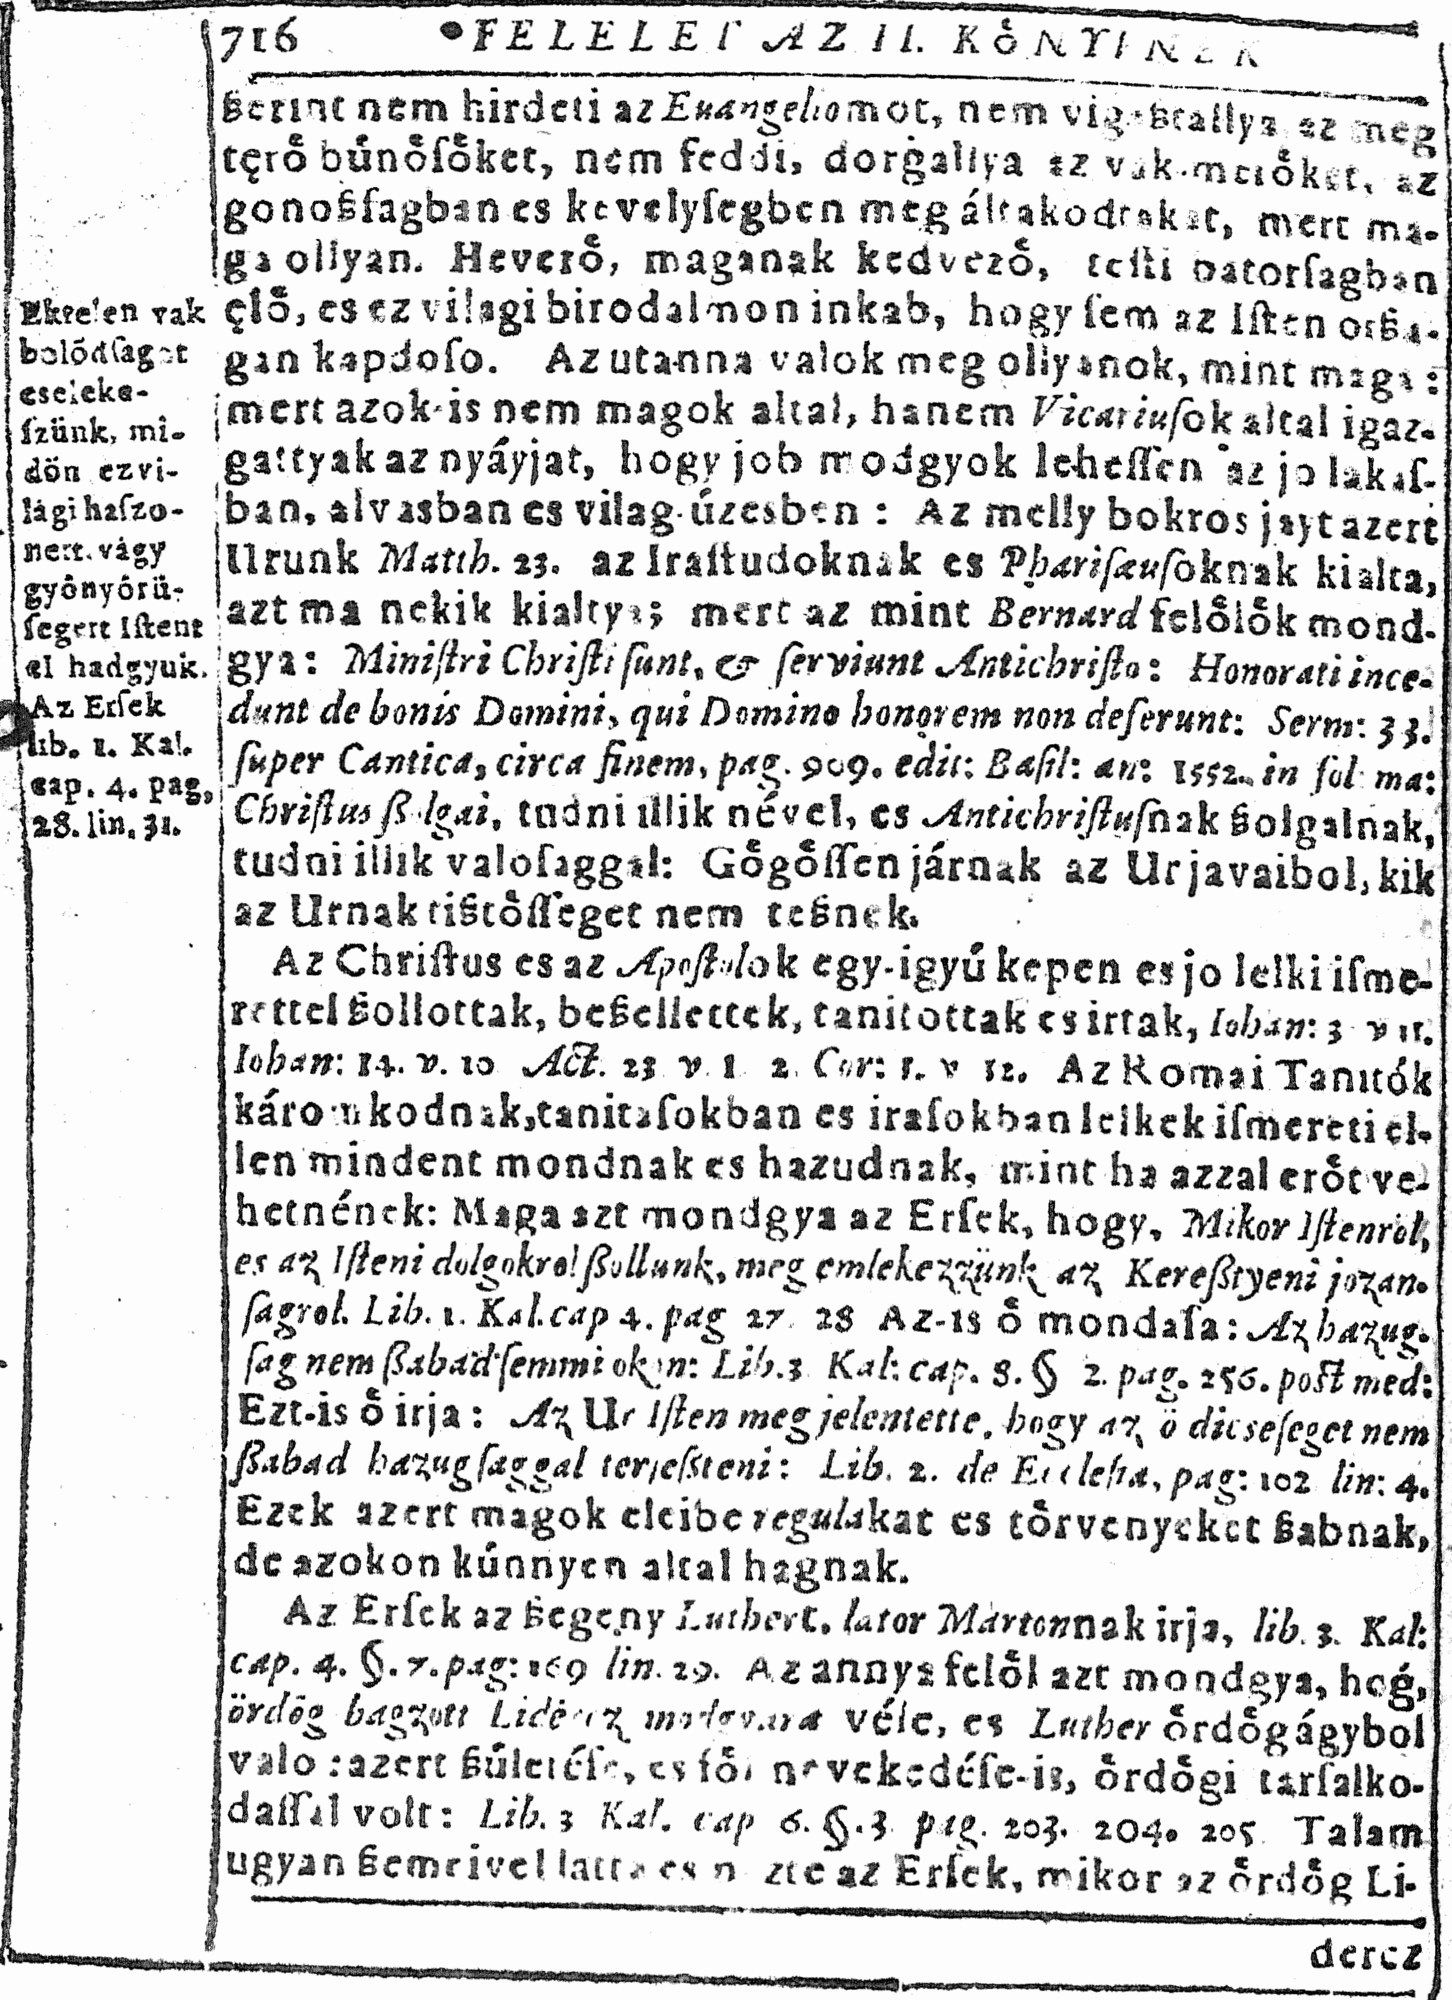 716 FELELET AZ II. KöNYVNEK
ßerint nem hirdeti az Euangeliomot, nem vigaßtallya az meg
tęrő bűnőſőket, nem feddi, dorgallya az vak-merőket, az
gonoßſagban es kevelyſegben meg áltakodtakat, mert ma-
ga ollyan. Heverő, maganak kedvező, teſti batorſagban
ęlő, es ez vilagi birodalmon inkab, hogy ſem az Iſten orßa-
gan kapdoſo. Az utanna valok meg ollyanok, mint maga:
mert azok-is nem magok altal, hanem Vicariuſok altal igaz-
gattyak az nyáyjat, hogy job modgyok leheſſen az jo lakaſ-
ban, alvasban es vilag-űzesben: Az melly bokros jayt azert
Urunk Matth. 23. az Iraſtudoknak es Phariſæuſoknak kialta,
azt ma nekik kialtya; mert az mint Bernard felőlők mond-
gya: Miniſtri Chriſti ſunt, & ſerviunt Antichriſto: Honorati ince-
dunt de bonis Domini, qui Domino honorem non deferunt: Serm: 33.
ſuper Cantica, circa finem, pag. 909. edit: Baſil: an: 1552. in fol ma:
Chriſtus ßolgai, tudni illik nével, es Antichriſtuſnak ßolgalnak,
tudni illik valoſaggal: Gőgőſſen járnak az Ur javaibol, kik
az Urnak tißtőſſeget nem teßnek.
Az Chriſtus es az Apoſtolok egy-igyű kepen es jo lelki iſme-
rettel ßollottak, beßellettek, tanitottak es irtak, Iohan: 3 v 11.
Iohan: 14. v. 10 Act. 23 v. 1 2. Cor: 1. v 12. Az Romai Tanitók
káromkodnak, tanitaſokban es iraſokban lelkek iſmereti el-
len mindent mondnak es hazudnak, mint ha azzal erőt ve-
hetnének: Maga azt mondgya az Erſek, hogy, Mikor Iſtenröl,
es az Iſteni dolgokrol ßollunk, meg emlekezzünk az Kereßtyeni jozan-
ſagrol. Lib. 1. Kal. cap 4. pag 27. 28 Az-is ő mondaſa: Az hazug-
ſag nem ßabad ſemmi okon: Lib. 3 Kal: cap. 8. § 2. pag. 256. post med:
Ezt-is ő irja: Az Ur Iſten meg jelentette, hogy az ö dicseſeget nem
ßabad hazugſaggal terjeßteni: Lib. 2. de Eccleſia, pag: 102 lin: 4.
Ezek azert magok eleibe regulakat es tőrvenyeket ßabnak,
de azokon kűnnyen altal hagnak.
Az Erſek az ßegeny Luthert, lator Martonnak irja, lib. 3. Kal:
cap. 4. §. 7. pag: 169 lin. 29. Az annya felől azt mondgya, hog,
ördög bagzott Lidércz modgyara véle, es Luther őrdőg ágybol
valo: azert ßűletéſe, es föl nevekedéſe-is, őrdőgi tarſalko-
daſſal volt: Lib. 3 Kal. cap 6. §. 3 pag. 203. 204. 205 Talam
ugyan ßemeivel latta es nezte az Erſek, mikor az őrdőg Li-
dercz
Ektelen vak
bolödſagot
cseleke-
ſzünk, mi-
dön ezvi-
lági haſzo-
nert, vágy
gyönyörü-
ſegert Iſtent
el hadgyuk.
Az Erſek
lib. 1. Kal.
cap. 4. pag,
28. lin. 31.